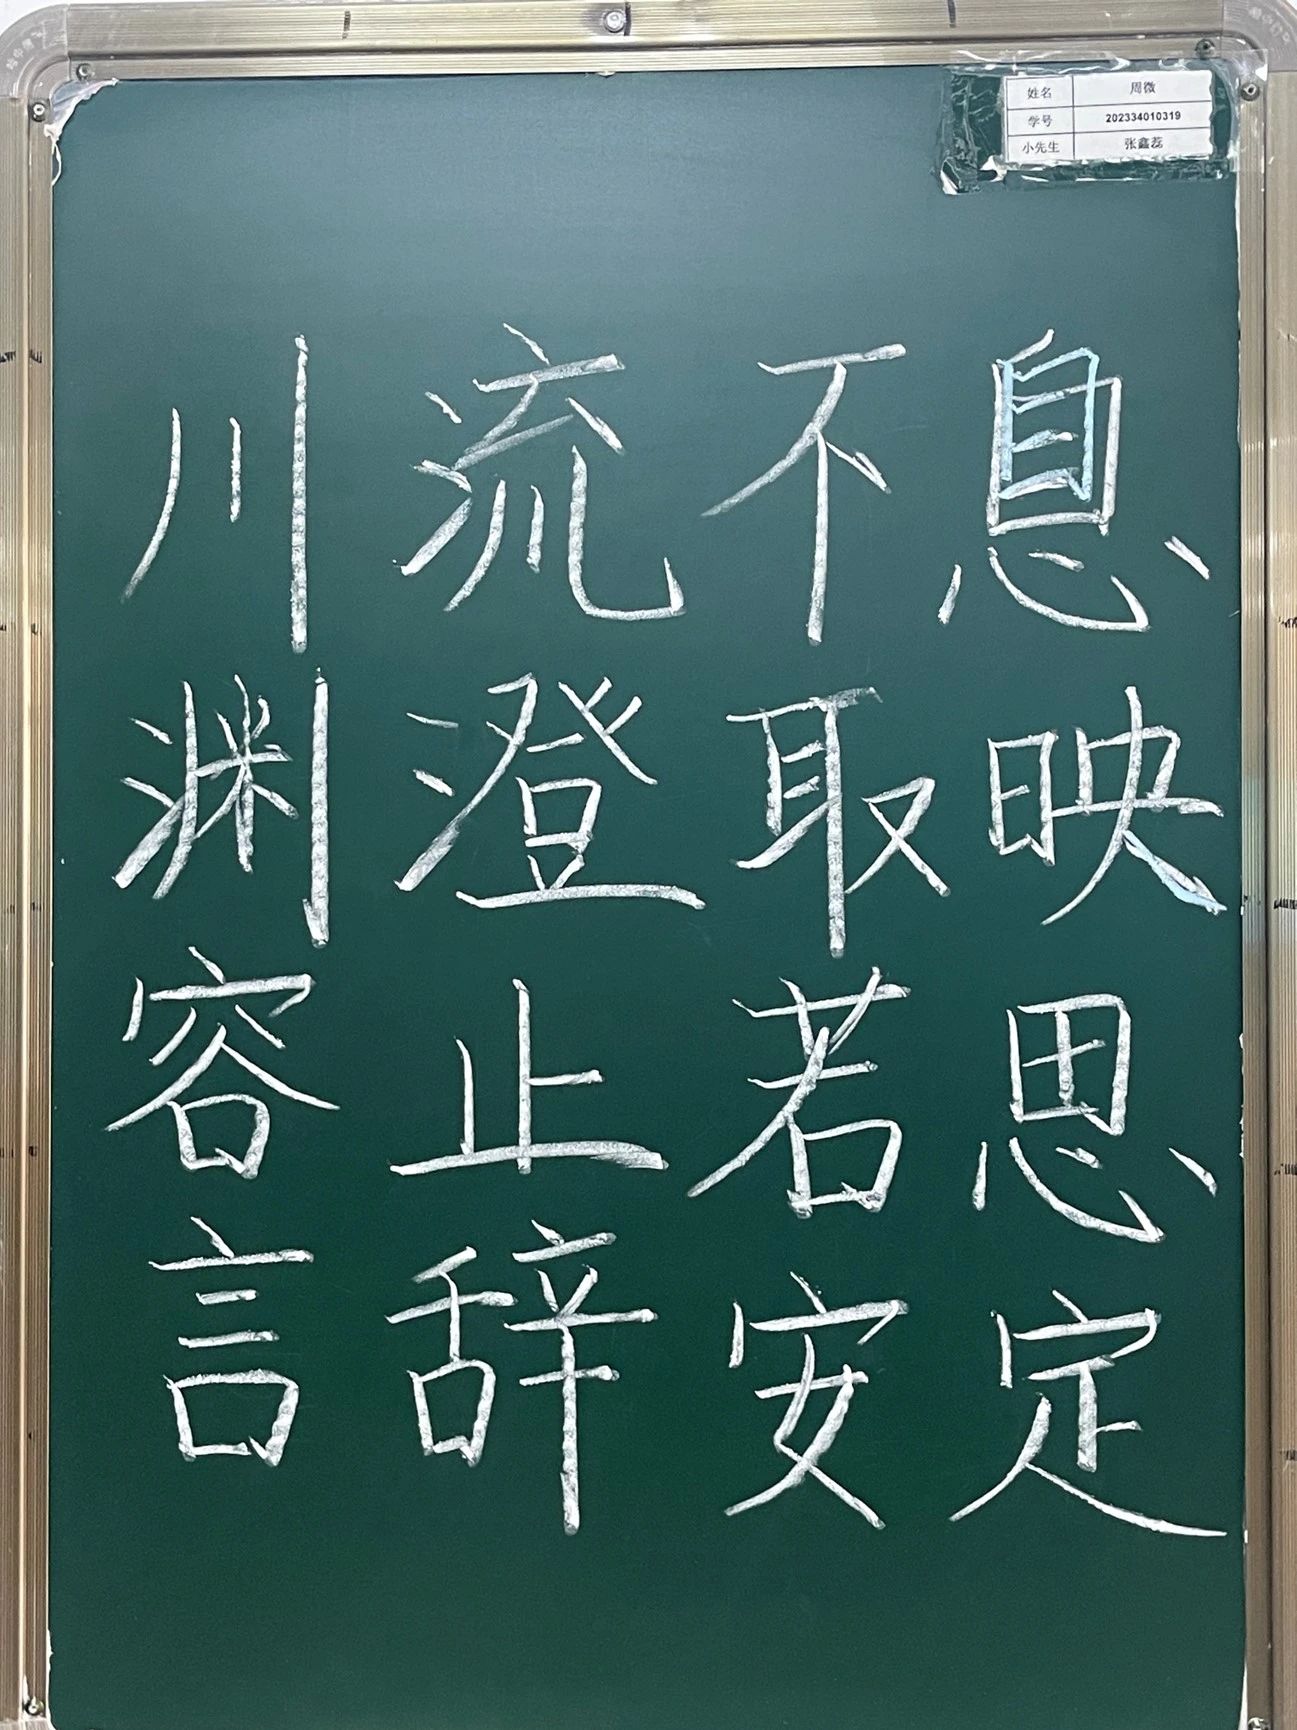 姓名 周微
学号 202334010319
小先生 张鑫蕊
川流不息
渊澄取映
容止若思
言辞安定